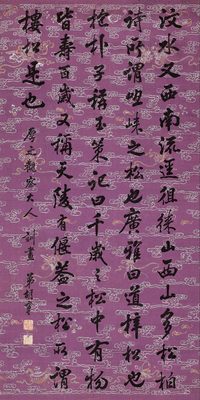 汶水又西南流逕徂徠山西山多松柏
詩所謂徂徠之松也廣雅曰道梓松也
抱朴子稱玉策記曰千歲之松中有物
皆壽百歲又稱天陵有偃蓋之松所謂
樓松是也
大人
弟胡